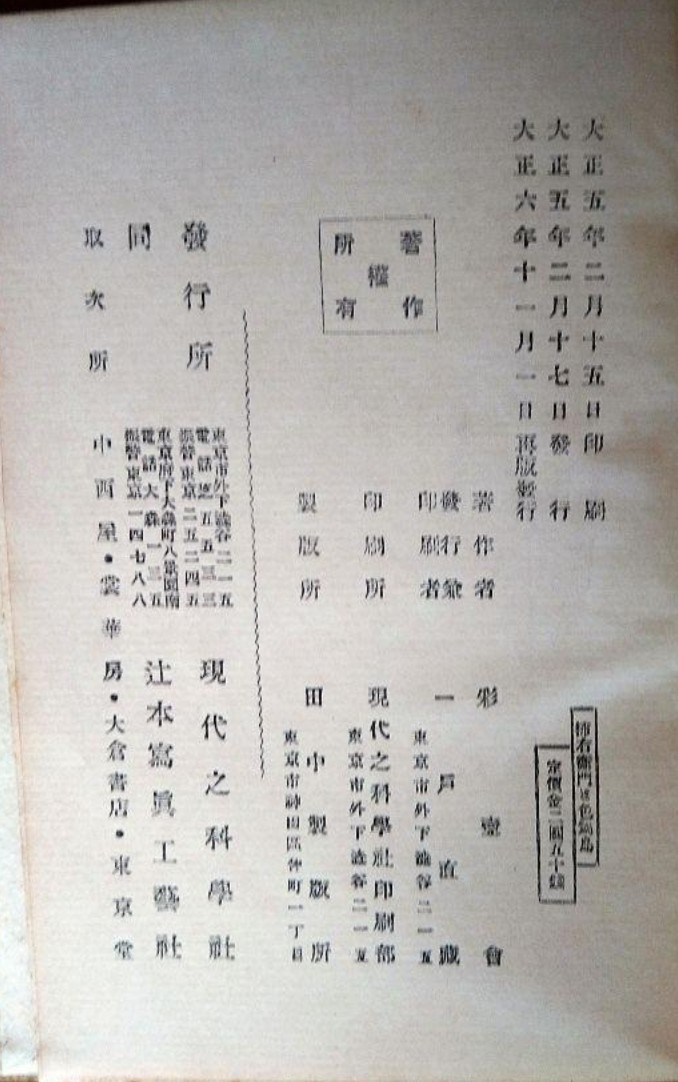 大正五年二月十五日印刷
大正五年二月十七日發行
大正六年十一月一日再版發行
柿右衞門と色鍋島
定價金二圓九十錢
著作權所有
著作者 彩壺會
發行兼印刷者 一戶直藏
東京市外下澁谷二一五
印刷所 現代之科學社印刷部
東京市外下澁谷二一五
製版所 田中製版所
東京市神田區仲町一丁目
發行所 現代之科學社
東京市外下澁谷二一五
電話芝五五三三
振替東京二五二四五
同 辻本寫眞工藝社
東京府下大森町八景園南
電話大森一三五
振替東京一四七八八
取次所 中西屋・裳華房・大倉書店・東京堂